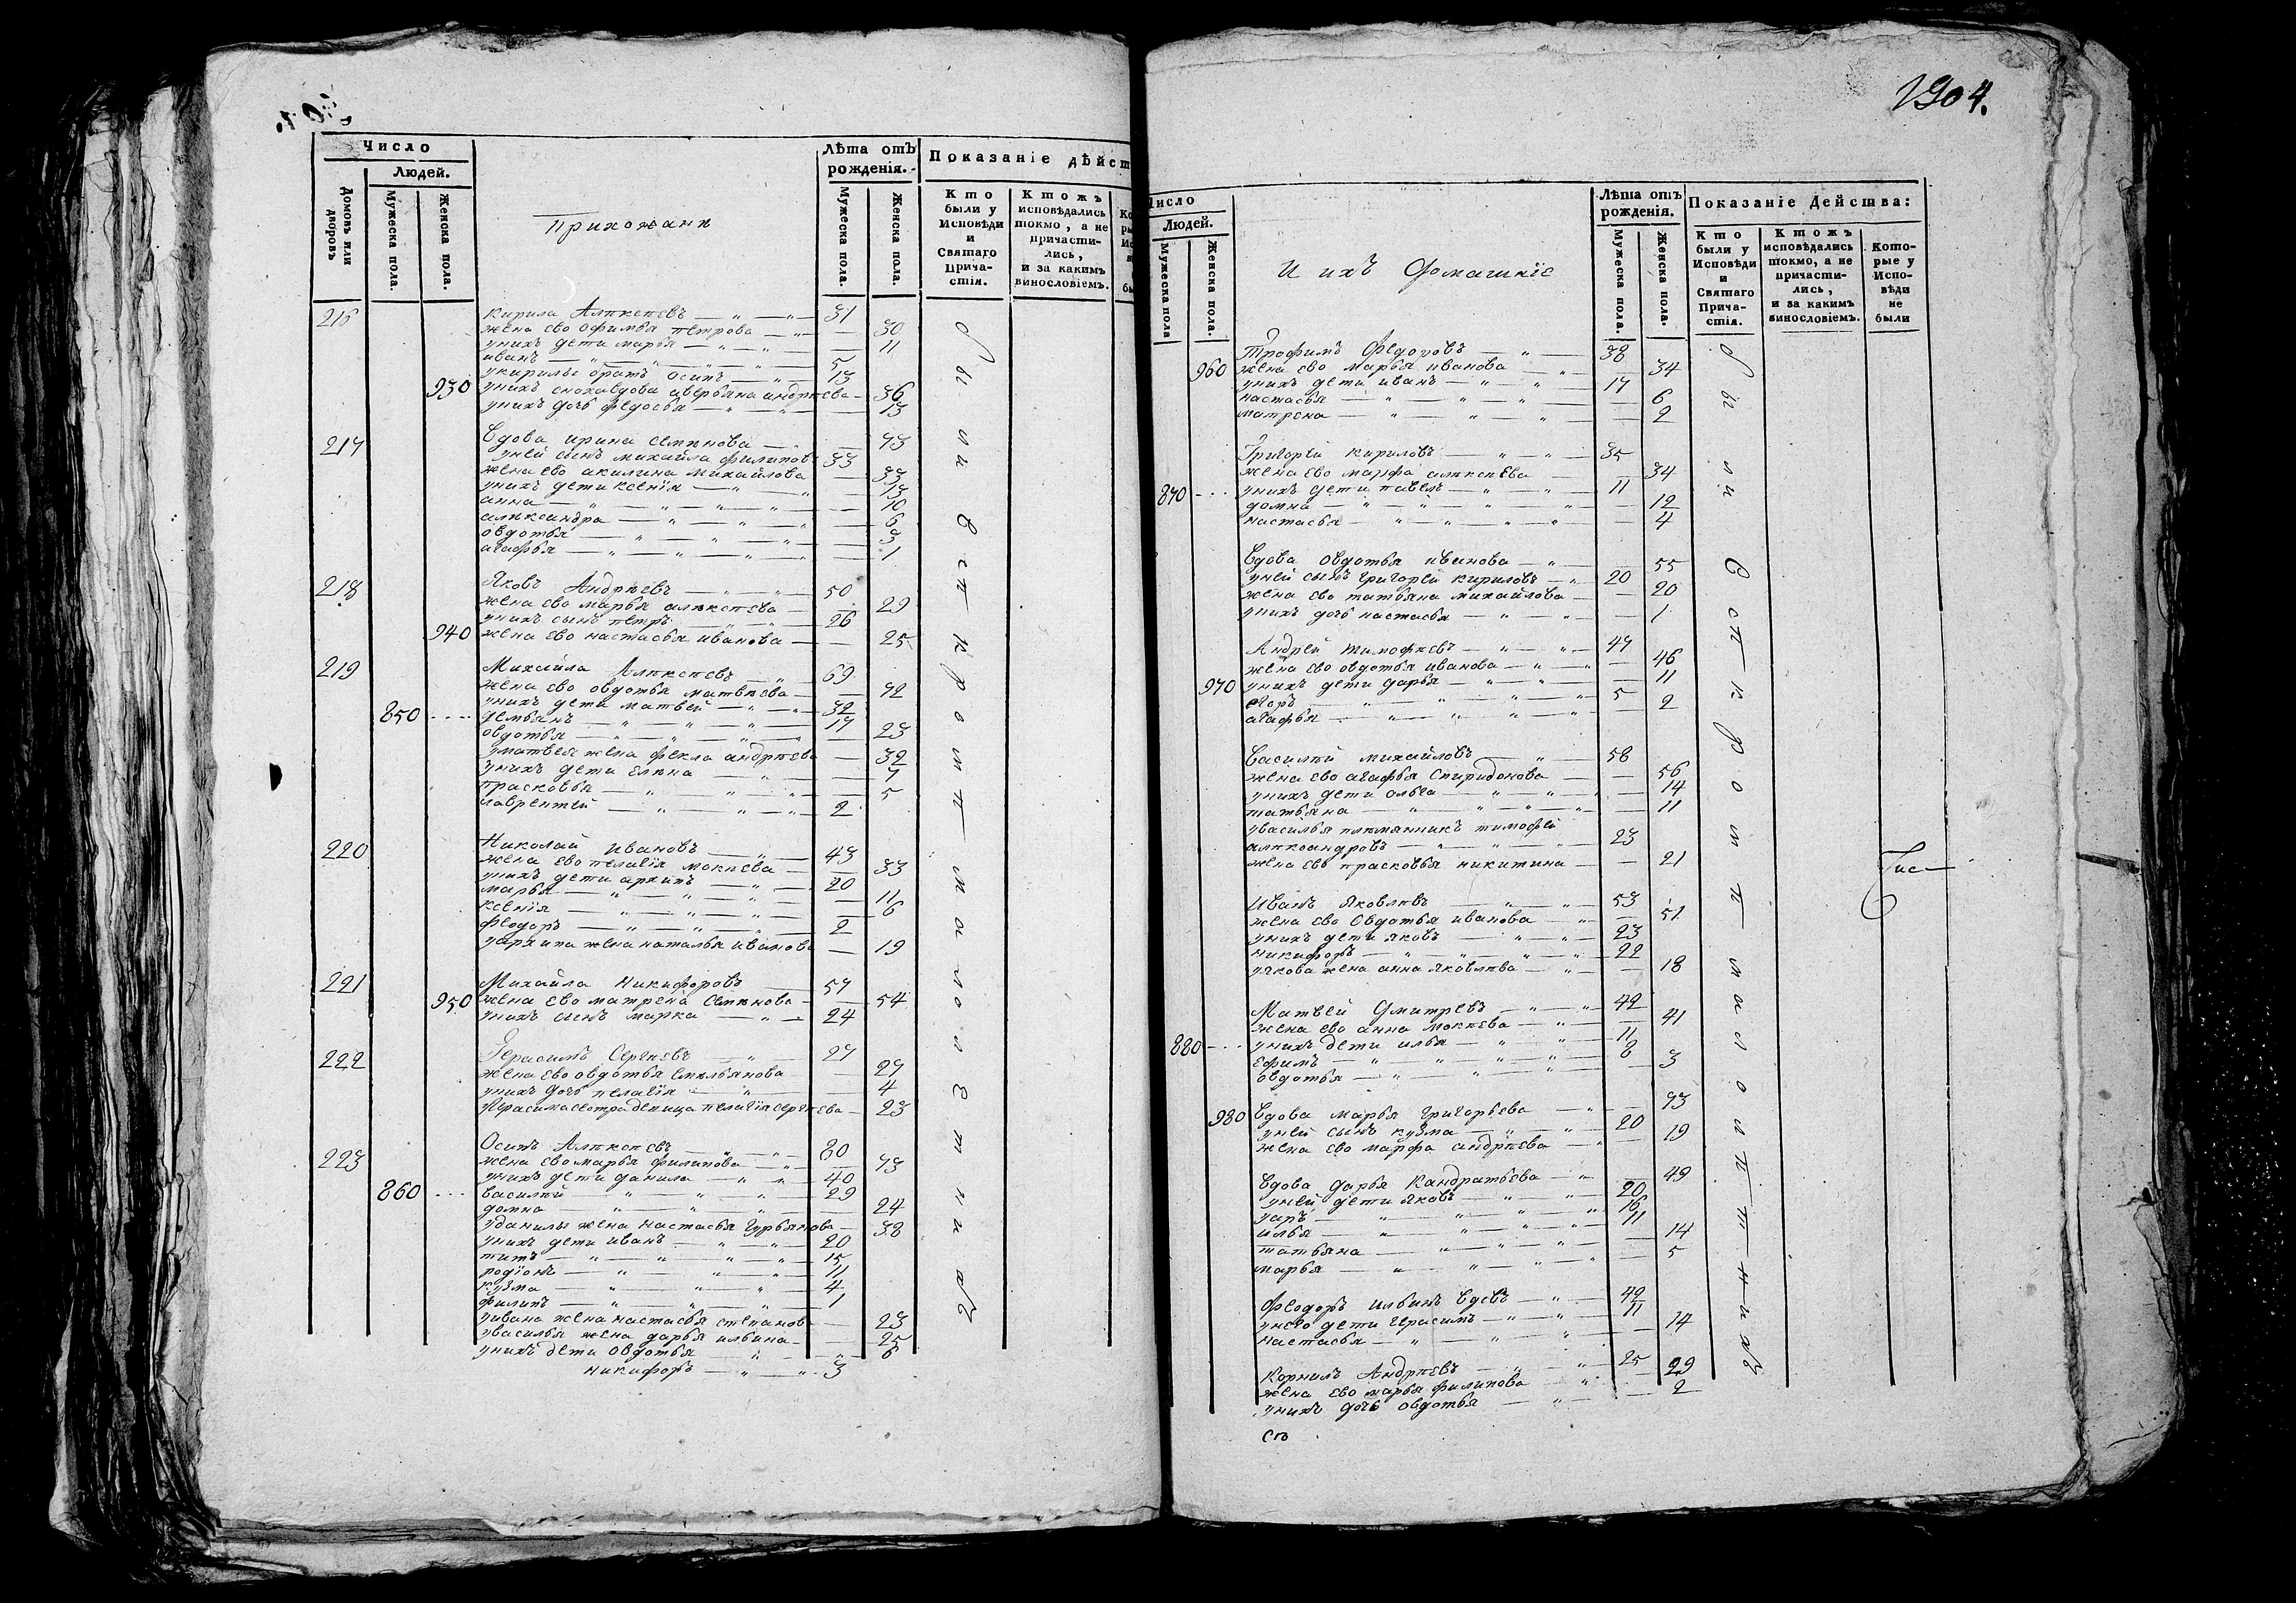 Число
Людей.
Домовъ или дворовъ
Мужеска пола.
Женска пола.
Прихожанѣ
Лѣта отъ рожденія.
Мужеска пола.
Женска пола.
Показаніе дѣйст
Кто были у Исповѣди и Святаго Прича-стія.
Ктожъ исповѣдались токмо, а не причасти-лись, и за какимъ винословіемъ.
216 Кирила Алѣксѣевъ 31
жена ево офимья петрова 30
унихъ дети марья 11
иванъ 5
укирилы братъ осипъ 13
930 унихъ снохавдова авервяна андрѣева 36
унихъ дочь федосья 13
217 Вдова ирина семѣнова 73
уней сынъ михайла филипов 33
жена ево акилина михайлова 33
унихъ дети ксенія 13
анна 10
алѣксандра 6
овдотья 3
агафья 1
218 Яковъ Андрѣевъ 50
жена ево марья алѣксѣева 29
унихъ сынъ петръ 26
940 жена ево настасья иванова 25
219 Михайла Алѣксѣевъ 69
жена ево овдотья матвѣева 72
унихъ дети матвей 32
850 демьянъ 17
овдотья 23
уматвея жена фекла андрѣева 32
унихъ дети елѣна 7
прасковья 5
лаврентей 2
220 Николай Ивановъ 43
жена ево пелагія мокѣева 33
унихъ дети архипъ 20
марья 11
ксенія 6
феодоръ 2
уархипа жена наталья иванова 19
221 Михайла Никифоровъ 57
950 жена ево матрена Семѣнова 54
унихъ сынъ марка 24
222 Герасимъ Сергѣевъ 27
жена ево овдотья емѣльянова 27
унихъ дочь пелагія 4
угерасима сестра девица пелагія сергѣева 23
223 Осипъ Алѣксѣевъ 80
жена ево марья филипова 73
унихъ дети данила 40
860 василѣй 29
домна 24
уданилы жена настасья гурьянова 38
унихъ дети иванъ 20
титъ 15
родіонъ 11
кузма 4
филипъ 1
уивана жена настасья степанов 23
увасилья жена дарья ильина 25
унихъ дети овдотья 6
никифоръ 3
были въ сѣкромѣ малолѣтнихъ
1904.
Число
Людей.
Мужеска пола
Женска пола.
И ихъ домашніе
Лѣта отъ рожденія.
Мужеска пола.
Женска пола.
Показаніе Действа:
Кто были у Исповѣди и Святаго Прича-стія.
Ктожъ исповѣдались токмо, а не причасти-лись, и за какимъ винословіемъ.
Кото-рые у Испо-вѣди не были
Трофимъ Федоровъ 38
960 жена ево марья иванова 34
унихъ дети иванъ 17
настасья 6
матрена 2
Григорей кириловъ 35
жена ево марфа алѣксѣева 34
870 унихъ дети павелъ 11
домна 12
настасья 4
Вдова овдотья ивинова 55
уней сынъ григорей кириловъ 20
жена ево татьяна михайлова 20
унихъ дочь настасья 1
Андрей тимофѣевъ 47
жена ево овдотья иванова 46
970 унихъ дети дарья 11
егоръ 5
агафья 2
Василѣй михайловъ 58
жена ево агафья Спиридонова 56
унихъ дети ольга 14
татьяна 11
увасилья плѣмянникъ тимофей
алѣксандровъ 23
жена ево прасковья никитина 21
Иванъ яковлевъ 53
жена ево овдотья иванова 51
унихъ дети яковъ 23
никифоръ 22
уякова жена анна яковлева 18
Матвей Дмитревъ 42
жена ево анна мокѣева 41
880 унихъ дети илья 11
ефимъ 8
овдотья 3
980 Вдова марья григорьева 73
уней сынъ кузма 20
жена ево марфа андрѣева 19
Вдова дарья кандратьева 49
уней дети яковъ 20
уаръ 16
илья 11
татьяна 14
марья 5
Феодоръ ильинъ вдовъ 42
унего дети герасимъ 11
настасья 14
Корнилъ Андрѣевъ 25
жена ево марья филипова 29
унихъ дочь овдотья 2
были